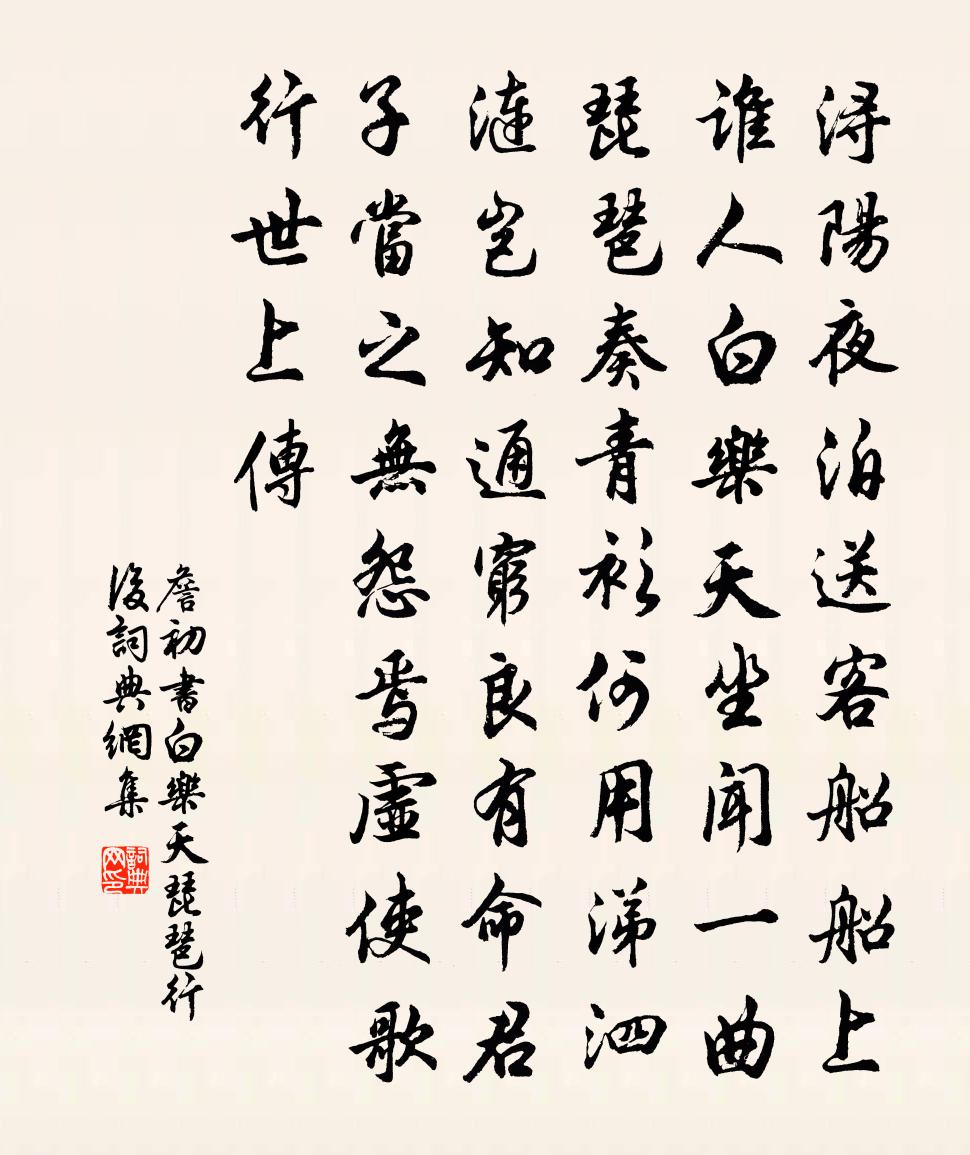 潯陽夜泊送客船船上
誰人白樂天坐聞一曲
琵琶奏青衫何用涕泗
漣豈知通窮良有命君
子當之無怨焉虛使歌
行世上傳
詹初書白樂天琵琶行
後詞典網集
詞典網印